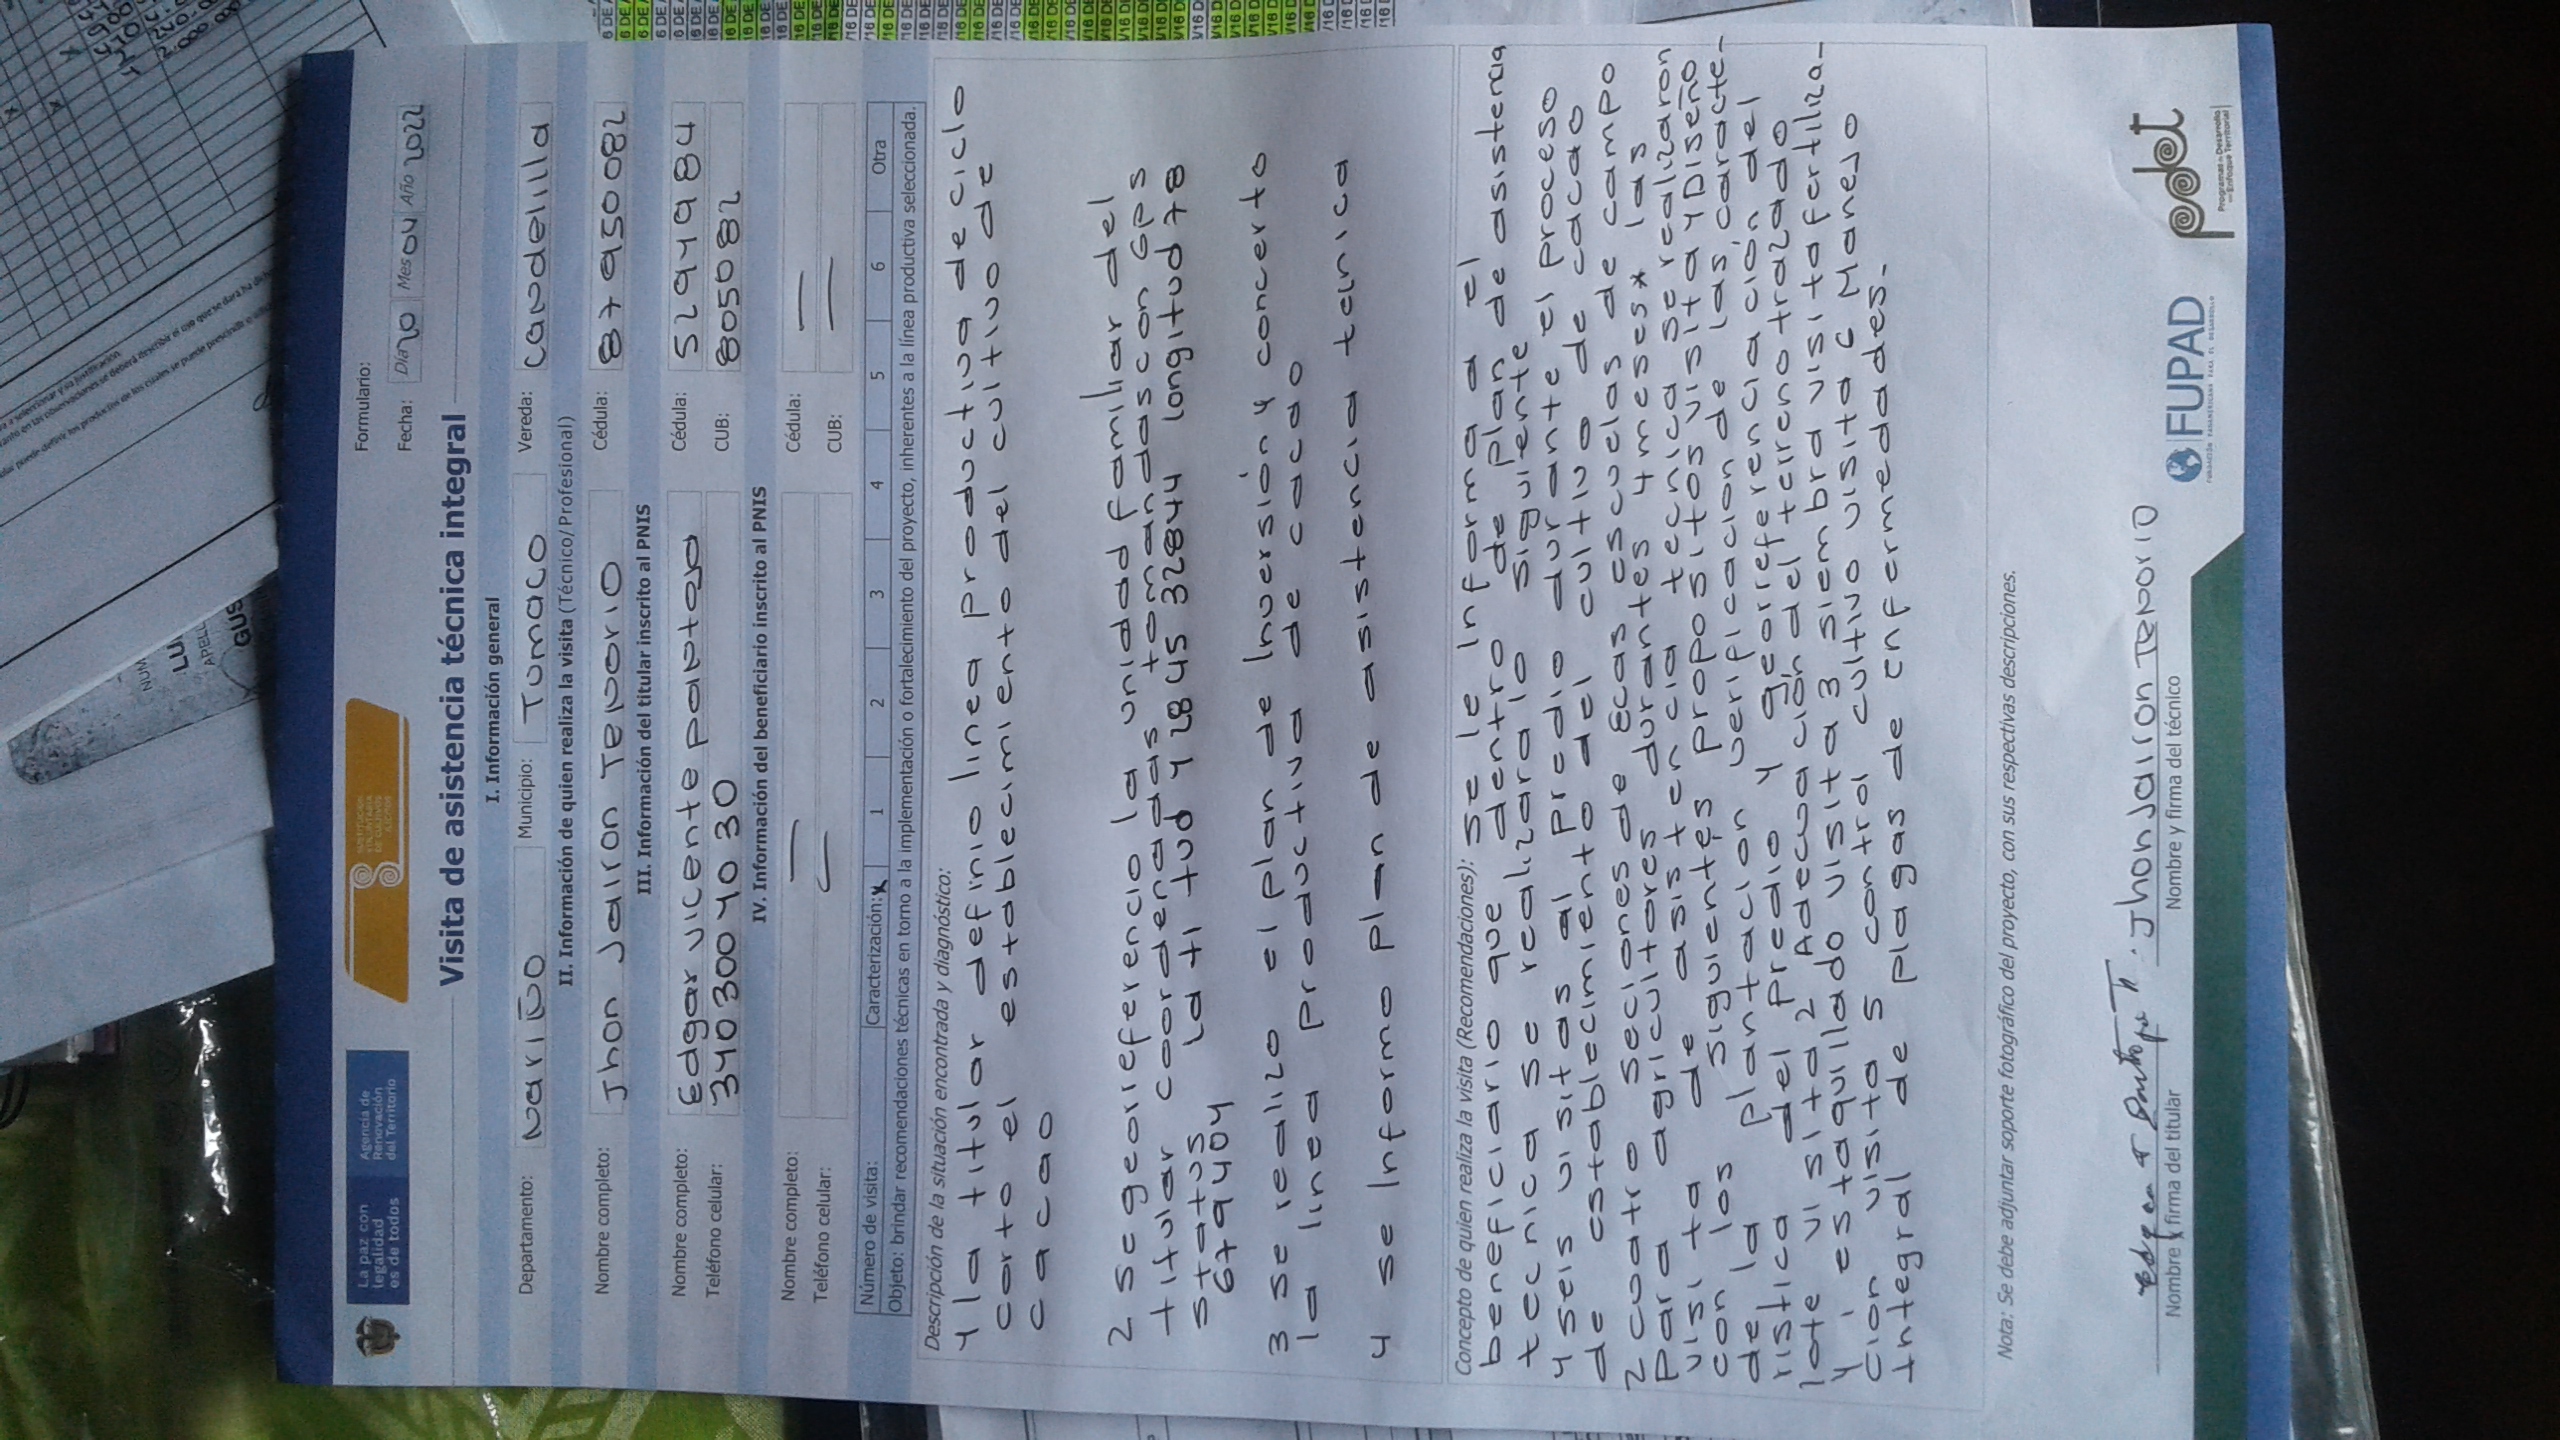 La paz con
legalidad
es de todos
Agencia de
Renovación
del Territorio
SUSTITUCIÓN
VOLUNTARIA
DE CULTIVOS
ILÍCITOS
Formulario:
Fecha: Día 20 Mes 04 Año 2022
Visita de asistencia técnica integral
I. Información general
Departamento: Nariño Municipio: Tumaco Vereda: Candelilla
II. Información de quien realiza la visita (Técnico/Profesional)
Nombre completo: Jhon Jairon Tenorio Cédula: 87950082
III. Información del titular inscrito al PNIS
Nombre completo: Edgar vicente pantoja Cédula: 5294984
Teléfono celular: 3403004030 CUB: 805082
IV. Información del beneficiario inscrito al PNIS
Nombre completo: — Cédula: —
Teléfono celular: — CUB: —
Número de visita: Caracterización: x 1 2 3 4 5 6 Otra
Objeto: brindar recomendaciones técnicas en torno a la implementación o fortalecimiento del proyecto, inherentes a la línea productiva seleccionada.
Descripción de la situación encontrada y diagnóstico:
1 la titular definio linea productiva de ciclo
corto el establecimiento del cultivo de
cacao
2 se georreferencio la unidad familiar del
titular coordenadas tomandas con GPS
status Lati tud 4 2845 32844 Longitud 78
6794404
3 se realizo el plan de Inversión y concerto
la linea productiva de cacao
4 se Informo plan de asistencia tecnica
Concepto de quien realiza la visita (Recomendaciones): se le Informa a el
beneficiario que dentro de plan de asistencia
tecnica se realizara lo siguiente
1 seis visitas al predio durante el proceso
de establecimiento del cultivo de cacao
2 cuatro seciones de Ecas escuelas de campo
para agricultores durantes 4 meses* las
visita de asistencia tecnica se realizaron
con los siguientes propositos visita 1 Diseño
de la plantacion verificacion de las caracte-
ristica del predio y georreferenciación del
lote visita 2 Adecuación del terreno trazado
y estaquillado visita 3 siembra visita fertiliza-
cion visita 5 control cultivo visita 6 Manejo
Integral de plagas de enfermedades.
Nota: Se debe adjuntar soporte fotográfico del proyecto, con sus respectivas descripciones.
Jhon Jairon Tenorio
Nombre y firma del titular
Nombre y firma del técnico
FUPAD
FUNDACIÓN PANAMERICANA PARA EL DESARROLLO
pdet
Programas de Desarrollo
con Enfoque Territorial